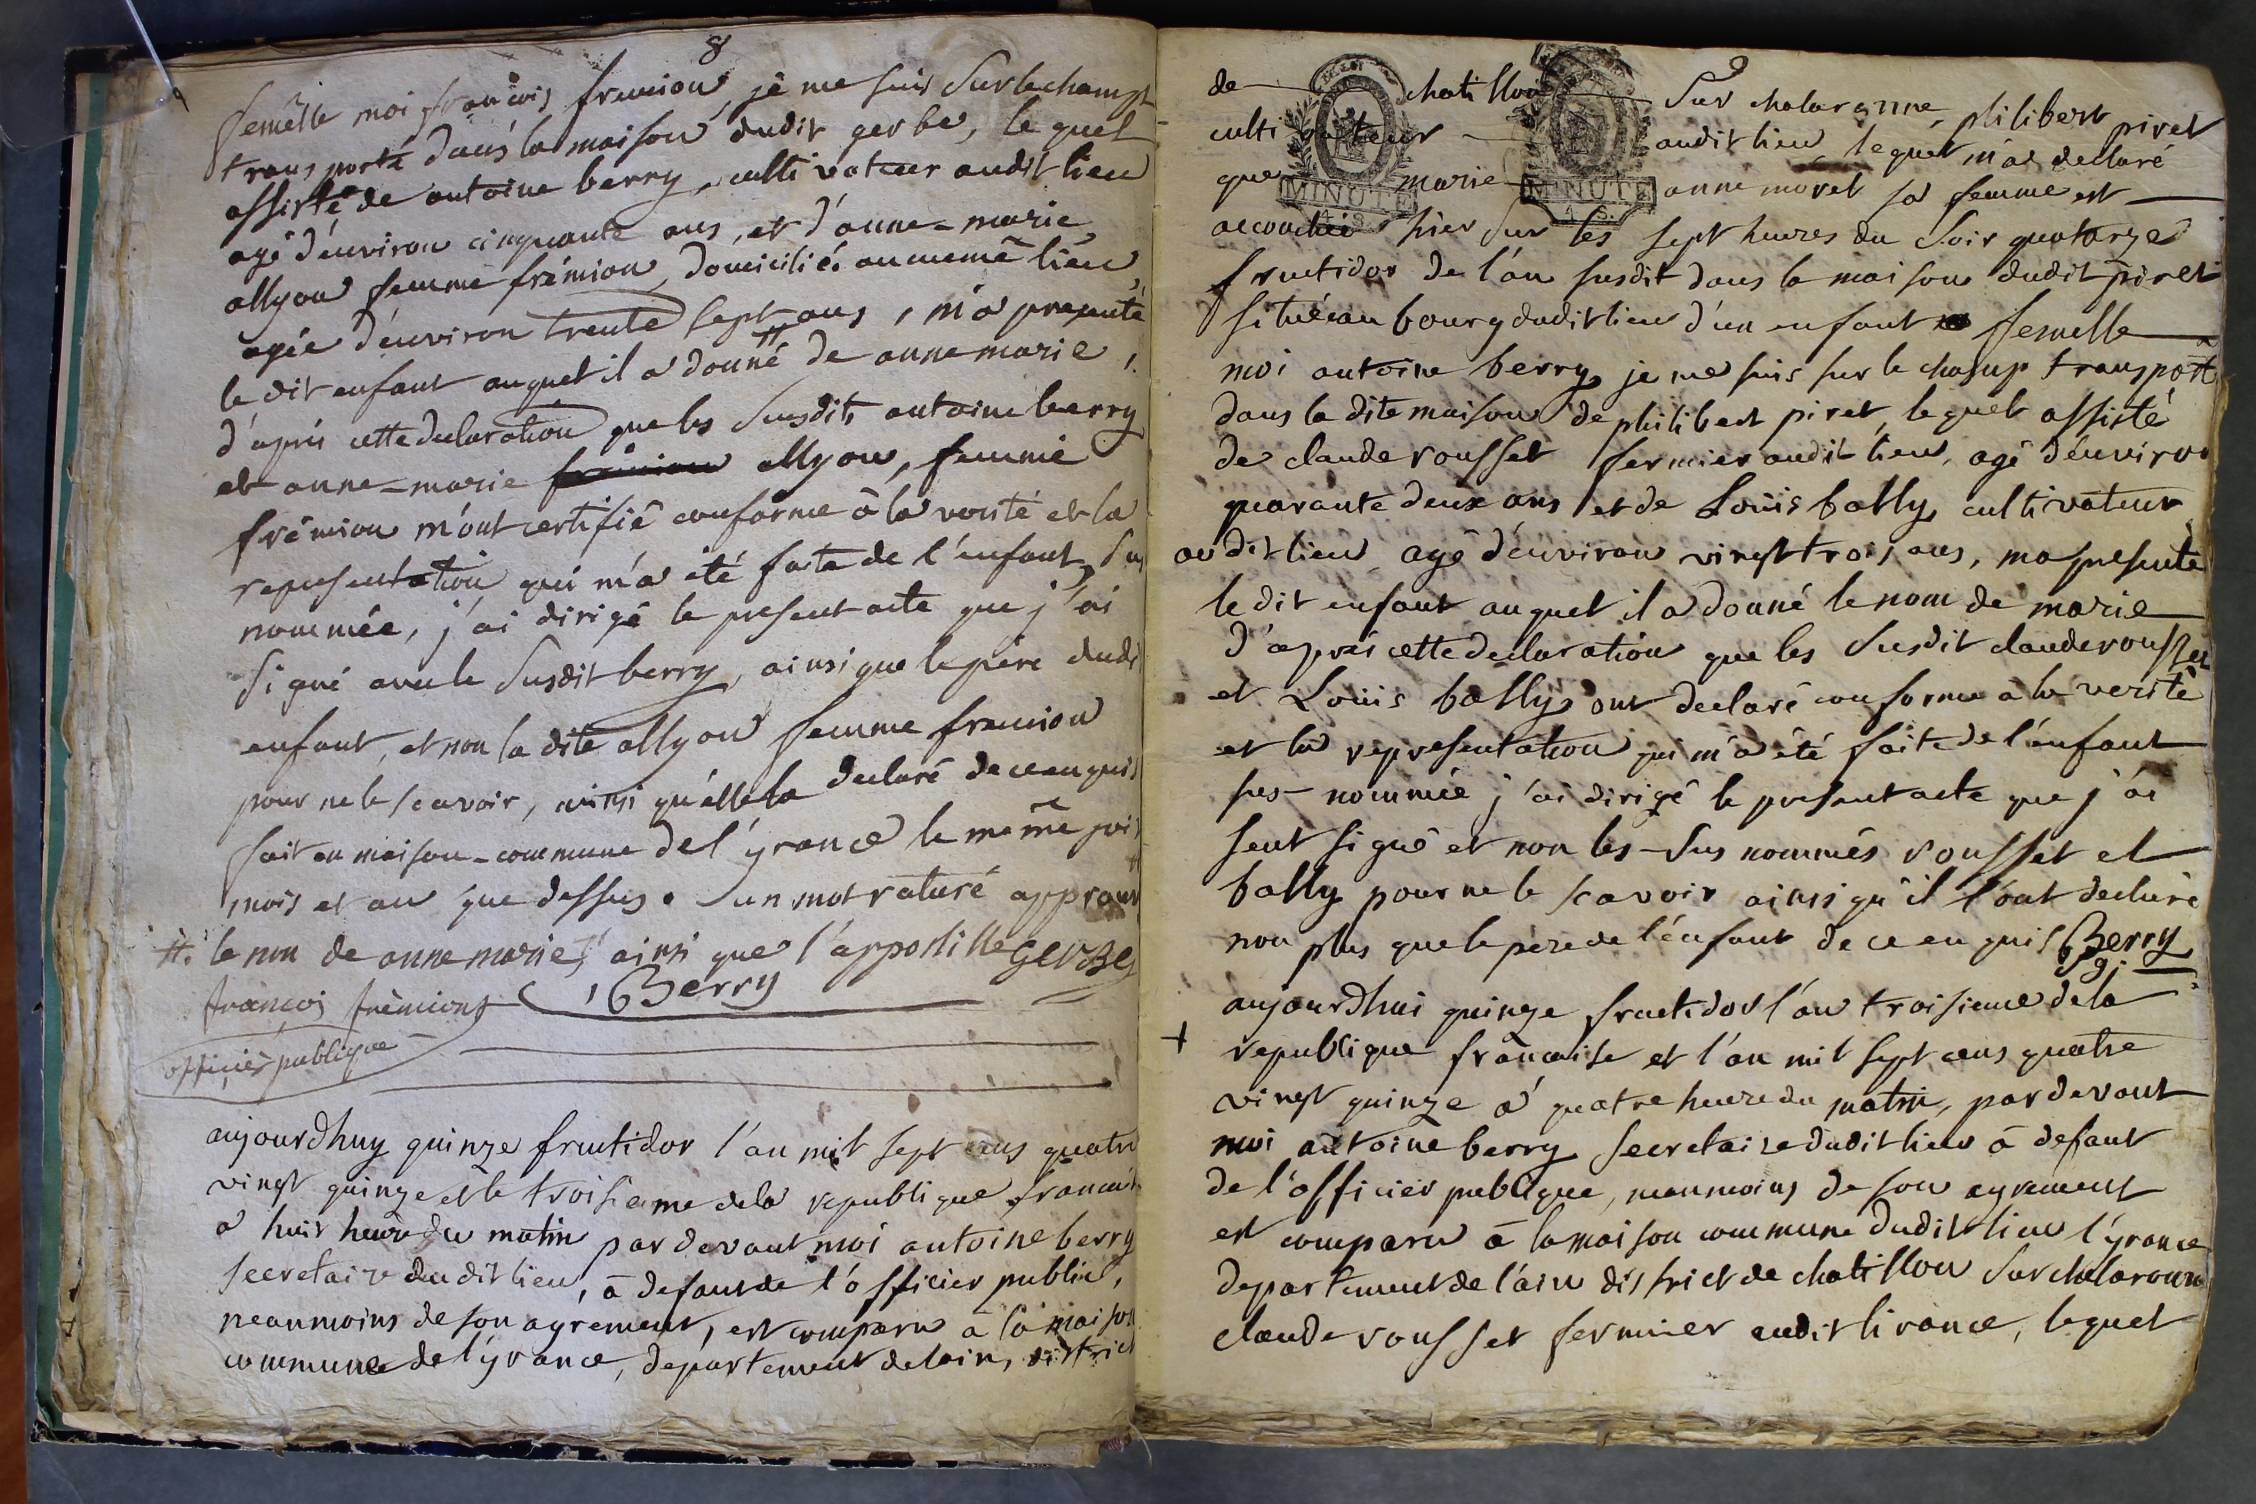 8
femêlle moi françois fremion, je me suis sur le champt
transporté dans la maison dudit gerbe, le quel
assisté de antoine berry, cultivateur audit lieu
agé d'environ cinquante ans, et d'anne-marie
allyon femme frémion, domicilié au même lieu
agée d'environ trente sept ans, m'a presenté
le dit enfant auquel il a donné # de anne marie,
d'apris cette declaration que les susdits antoine berry
et anne-marie allyon, femme
frémion m'ont certifié conforme à la verité et la
representation qui m'a été faite de l'enfant, sus
nommée, j'ai dirigé le present acte que j'ai
signé avec le susdit berry, ainsi que le père dudi
enfant, et non la dite allyon femme fremion
pour ne le scavoir, ainsi qu'elle la declaré de ce enquis
fait en maison-commune de l'yrance le même joir
mois et an que dessus. un mot raturé approuv
#. le nom de anne marie, ainsi que l'appostille gerbe
françois frèmions Berry
officièr publique
aujourdhuy quinze fructidor l'an mil sept cens quatre
vingt quinze et le troisieme dela republique francais
a huit heure du matin par devant moi antoine berry
secretaire du dit lieu, à defaut de l'officier public,
neanmoins de son agrement, est comparu à la maison
commune de l'yrance, departement de lain, district
9
de chatillon sur chalaronne, philibert piret
cultivateur audit lieu, le quel m'a declaré
que marie anne morel sa femme est
accouchée hier sur les sept heures du soir quatorze
fructidor de l'an susdit dans la maison dudit piret
située au bourg dudit lieu d'un enfant femelle
moi antoine berry je me suis sur le champ transporté
dans la dite maison de philibert piret, le quel assisté
de claude rousset fermier audit lieu, agé d'environ
quarante deux ans et de Louis bally cultivateur
audit lieu agé d'environ vingt trois ans, ma presenté
le dit enfant auquel il a donné le nom de marie
d'après cette declaration que les susdit claude rousset
et Louis bally ont declaré conforme à la verité
et la representation qui m'a été faite de l'enfant
sus-nommée j'ai dirigé le present acte que j'ai
seul signé et non les-sus nommés rousset et
bally pour ne le scavoir ainsi qu'il l'ont declaré
non plus que le père de l'enfant de ce enquis Berry
aujourdhui quinze fructidor l'an troisieme dela
+ republique francaise et l'an mil sept cens quatre
vingt quinze à quatre heure du matin, par devant
moi antoine berry secretaire dudit lieu à defaut
de l'officier publique, neanmoins de son agrement
est comparu à la maison commune dudit lieu l'yrance
departement de l'ain district de chatillon sur chalaronne
claude rousset fermier audit lirance, le quel
MINUTE
MINUTE
4 S.